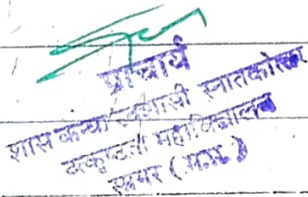 प्राचार्य
शास कन्या स्वशासी स्नातकोत्तर
उत्कृष्टता महाविद्यालय
सागर ( म.प्र. )